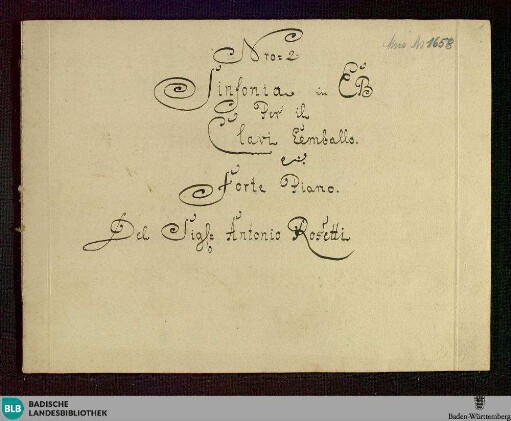 Mus. Hs 1658
Nro: 2:
Sinfonia in EB
Per il
Clavi Cemballo.
e
Forte Piano.
Del Sig: Antonio Rosetti
BLB BADISCHE
LANDESBIBLIOTHEK
Baden-Württemberg